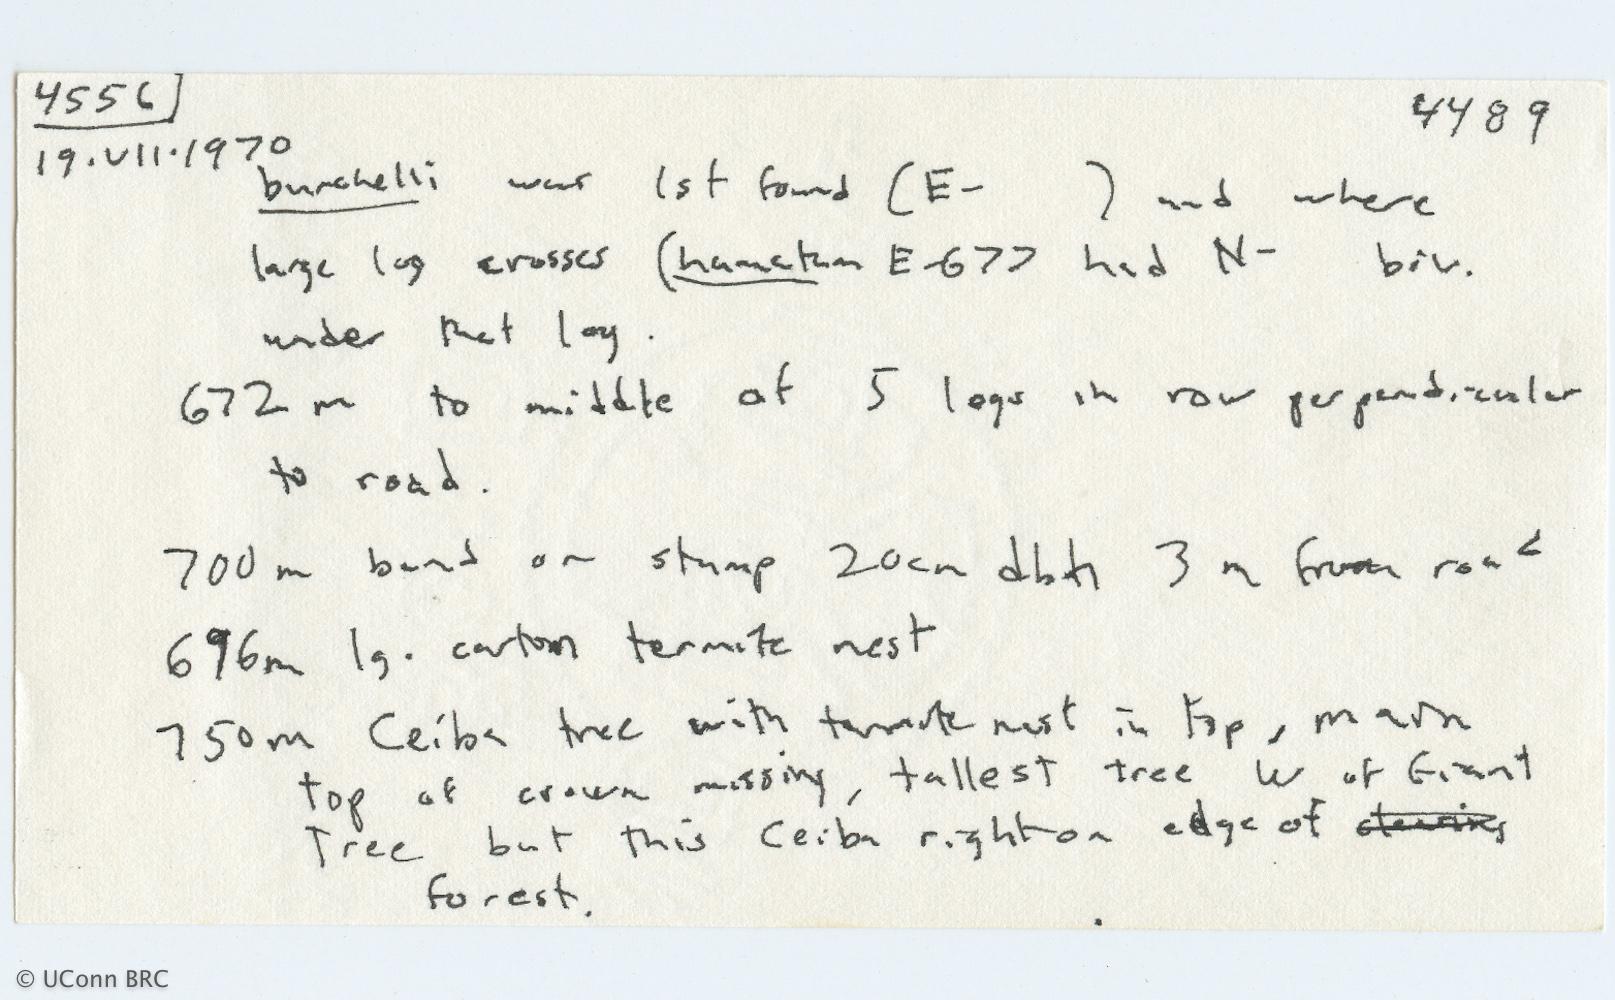 4556
4489
19.VII.1970
burchelli was 1st found (E-      ) and where
large log crosses (hamatum E-677 had N-      biv.
under that log.
672 m to middle of 5 logs in row perpendicular
to road.
700m band on stump 20cm dbh 3 m from road
696m lg. carton termite nest
750m Ceiba tree with termite nest in top, main
top of crown missing, tallest tree W of Giant
Tree but this Ceiba right on edge of clearing
forest.
© UConn BRC